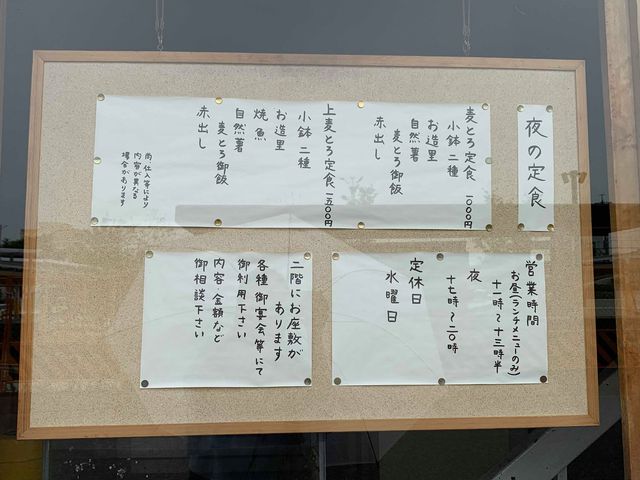 夜の定食
麦とろ定食 一〇〇〇円
小鉢二種
お造里
自然薯
麦とろ御飯
赤出し
上麦とろ定食 一五〇〇円
小鉢二種
お造里
焼魚
自然薯
麦とろ御飯
赤出し
尚、仕入等により
内容が異なる
場合があります
営業時間
お昼(ランチメニューのみ)
十一時〜十三時半
夜
十七時〜二〇時
定休日
水曜日
二階にお座敷が
あります
各種御宴会等にて
御利用下さい
内容、金額など
御相談下さい